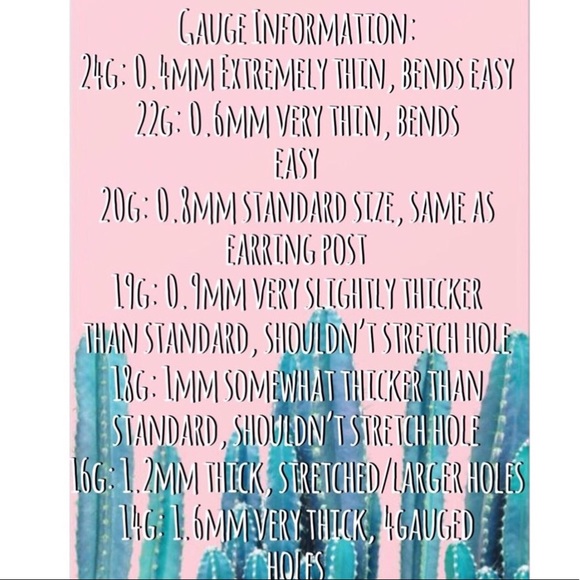 GAUGE INFORMATION:
24G: 0.4MM EXTREMELY THIN, BENDS EASY
22G: 0.6MM VERY THIN, BENDS
EASY
20G: 0.8MM STANDARD SIZE, SAME AS
EARRING POST
19G: 0.9MM VERY SLIGHTLY THICKER
THAN STANDARD, SHOULDN'T STRETCH HOLE
18G: 1MM SOMEWHAT THICKER THAN
STANDARD, SHOULDN'T STRETCH HOLE
16G: 1.2MM THICK, STRETCHED/LARGER HOLES
14G: 1.6MM VERY THICK, 4GAUGED
HOLES